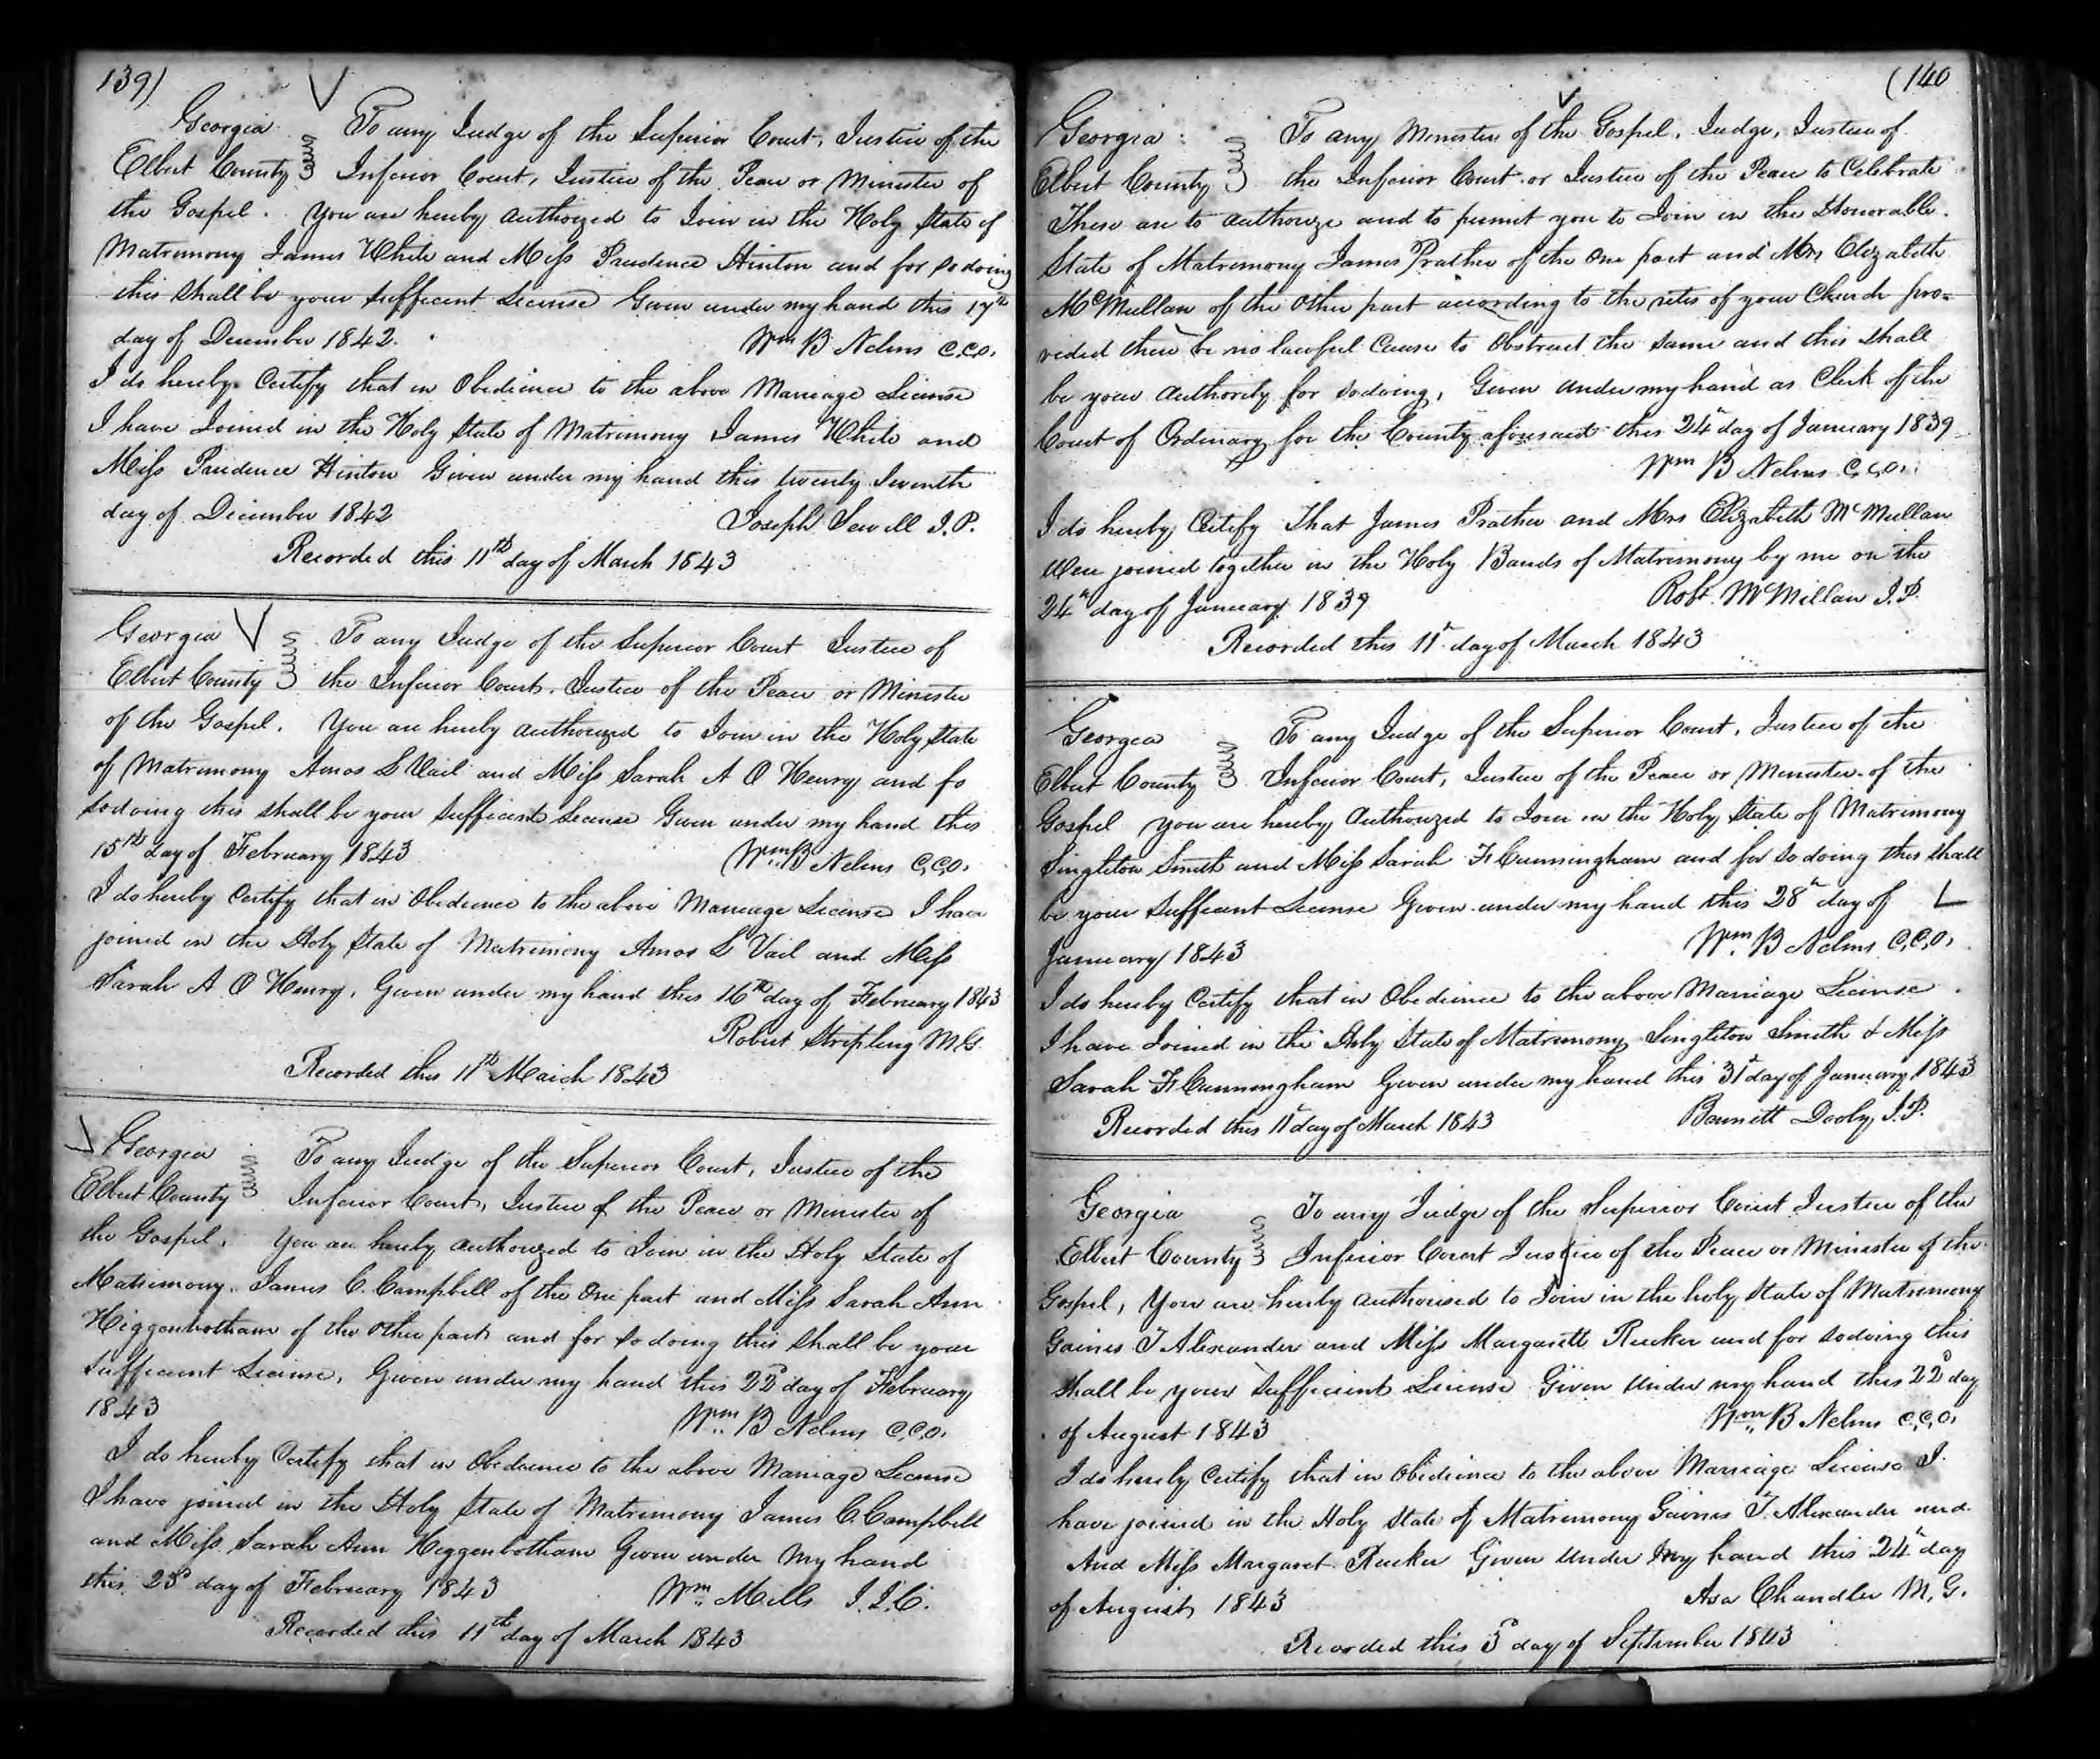 139)
Georgia To any Judge of the Superior Court, Justice of the
Elbert County Inferior Court, Justice of the Peace or Minister of
the Gospel. You are hereby authorized to Join in the Holy State of
Matrimony James White and Miss Prudence Hinton and for so doing
this shall be your sufficient License Given under my hand this 17th
day of December 1842. Wm B Nelms C.C.O.
I do hereby Certify that in Obedience to the above Marriage License
I have Joined in the Holy State of Matrimony James White and
Miss Prudence Hinton Given under my hand this twenty Seventh
day of December 1842 Joseph Sewell J.P.
Recorded this 11th day of March 1843
Georgia To any Judge of the Superior Court Justice of
Elbert County the Inferior Court, Justice of the Peace or Minister
of the Gospel. You are hereby authorized to Join in the Holy State
of Matrimony Amos L Vail and Miss Sarah A O Henry and fo
sodoing this shall be your sufficient License Given under my hand this
15th day of February 1843 Wm B Nelms C.C.O.
I do hereby Certify that in Obedience to the above Marriage License I have
joined in the Holy State of Matrimony Amos L Vail and Miss
Sarah A O Henry, Given under my hand this 16th day of February 1843
Robert Stripling M.G.
Recorded this 11th March 1843
Georgia To any Judge of the Superior Court, Justice of the
Elbert County Inferior Court, Justice of the Peace or Minister of
the Gospel. You are hereby authorized to Join in the Holy State of
Matrimony. James C. Campbell of the one part and Miss Sarah Ann
Higgenbotham of the other part and for so doing this shall be your
sufficient License, Given under my hand this 22d day of February
1843 Wm B Nelms C.C.O.
I do hereby Certify that in Obedience to the above Marriage License
I have joined in the Holy State of Matrimony James C. Campbell
and Miss Sarah Ann Higgenbotham Given under my hand
this 23d day of February 1843 Wm Mills J.I.C.
Recorded this 11th day of March 1843
(140
Georgia To any Minister of the Gospel, Judge, Justice of
Elbert County the Inferior Court or Justice of the Peace to Celebrate
These are to authorize and to permit you to Join in the Honorable
State of Matrimony James Prather of the one part and Mrs Elizabeth
McMullan of the other part according to the rites of your Church pro=
vided there be no lawful cause to Obstruct the same and this shall
be your authority for sodoing, Given under my hand as Clerk of the
Court of Ordinary for the County aforesaid this 24th day of January 1839
Wm B Nelms C.C.O.
I do hereby Certify That James Prather and Mrs Elizabeth McMullan
Were joined together in the Holy Bands of Matrimony by me on the
24th day of January 1839 Robt. McMillan J.P.
Recorded this 11th day of March 1843
Georgia To any Judge of the Superior Court, Justice of the
Elbert County Inferior Court, Justice of the Peace or Minister of the
Gospel You are hereby authorized to Join in the Holy State of Matrimony
Singleton Smith and Miss Sarah F Cunningham and for so doing this shall
be your sufficient License Given under my hand this 28th day of
January 1843 Wm. B Nelms C.C.O.
I do hereby Certify that in Obedience to the above Marriage License
I have Joined in the Holy State of Matrimony Singleton Smith & Miss
Sarah F Cunningham Given under my hand this 31st day of January 1843
Recorded this 11th day of March 1843 Barnett Dooly, J.P.
Georgia To any Judge of the Superior Court Justice of the
Elbert County Inferior Court Justice of the Peace or Minister of the
Gospel, You are hereby authorised to Join in the holy State of Matrimony
Gaines T Alexander and Miss Margarett Rucker and for sodoing this
shall be your sufficient License Given under my hand this 22d day
of August 1843 Wm B Nelms C.C.O.
I do hereby Certify that in Obedience to the above Marriage License I
have joined in the Holy State of Matrimony Gaines T. Alexander and
And Miss Margaret Rucker Given under my hand this 24th day
of August 1843 Asa Chandler M.G.
Recorded this 3d day of September 1843